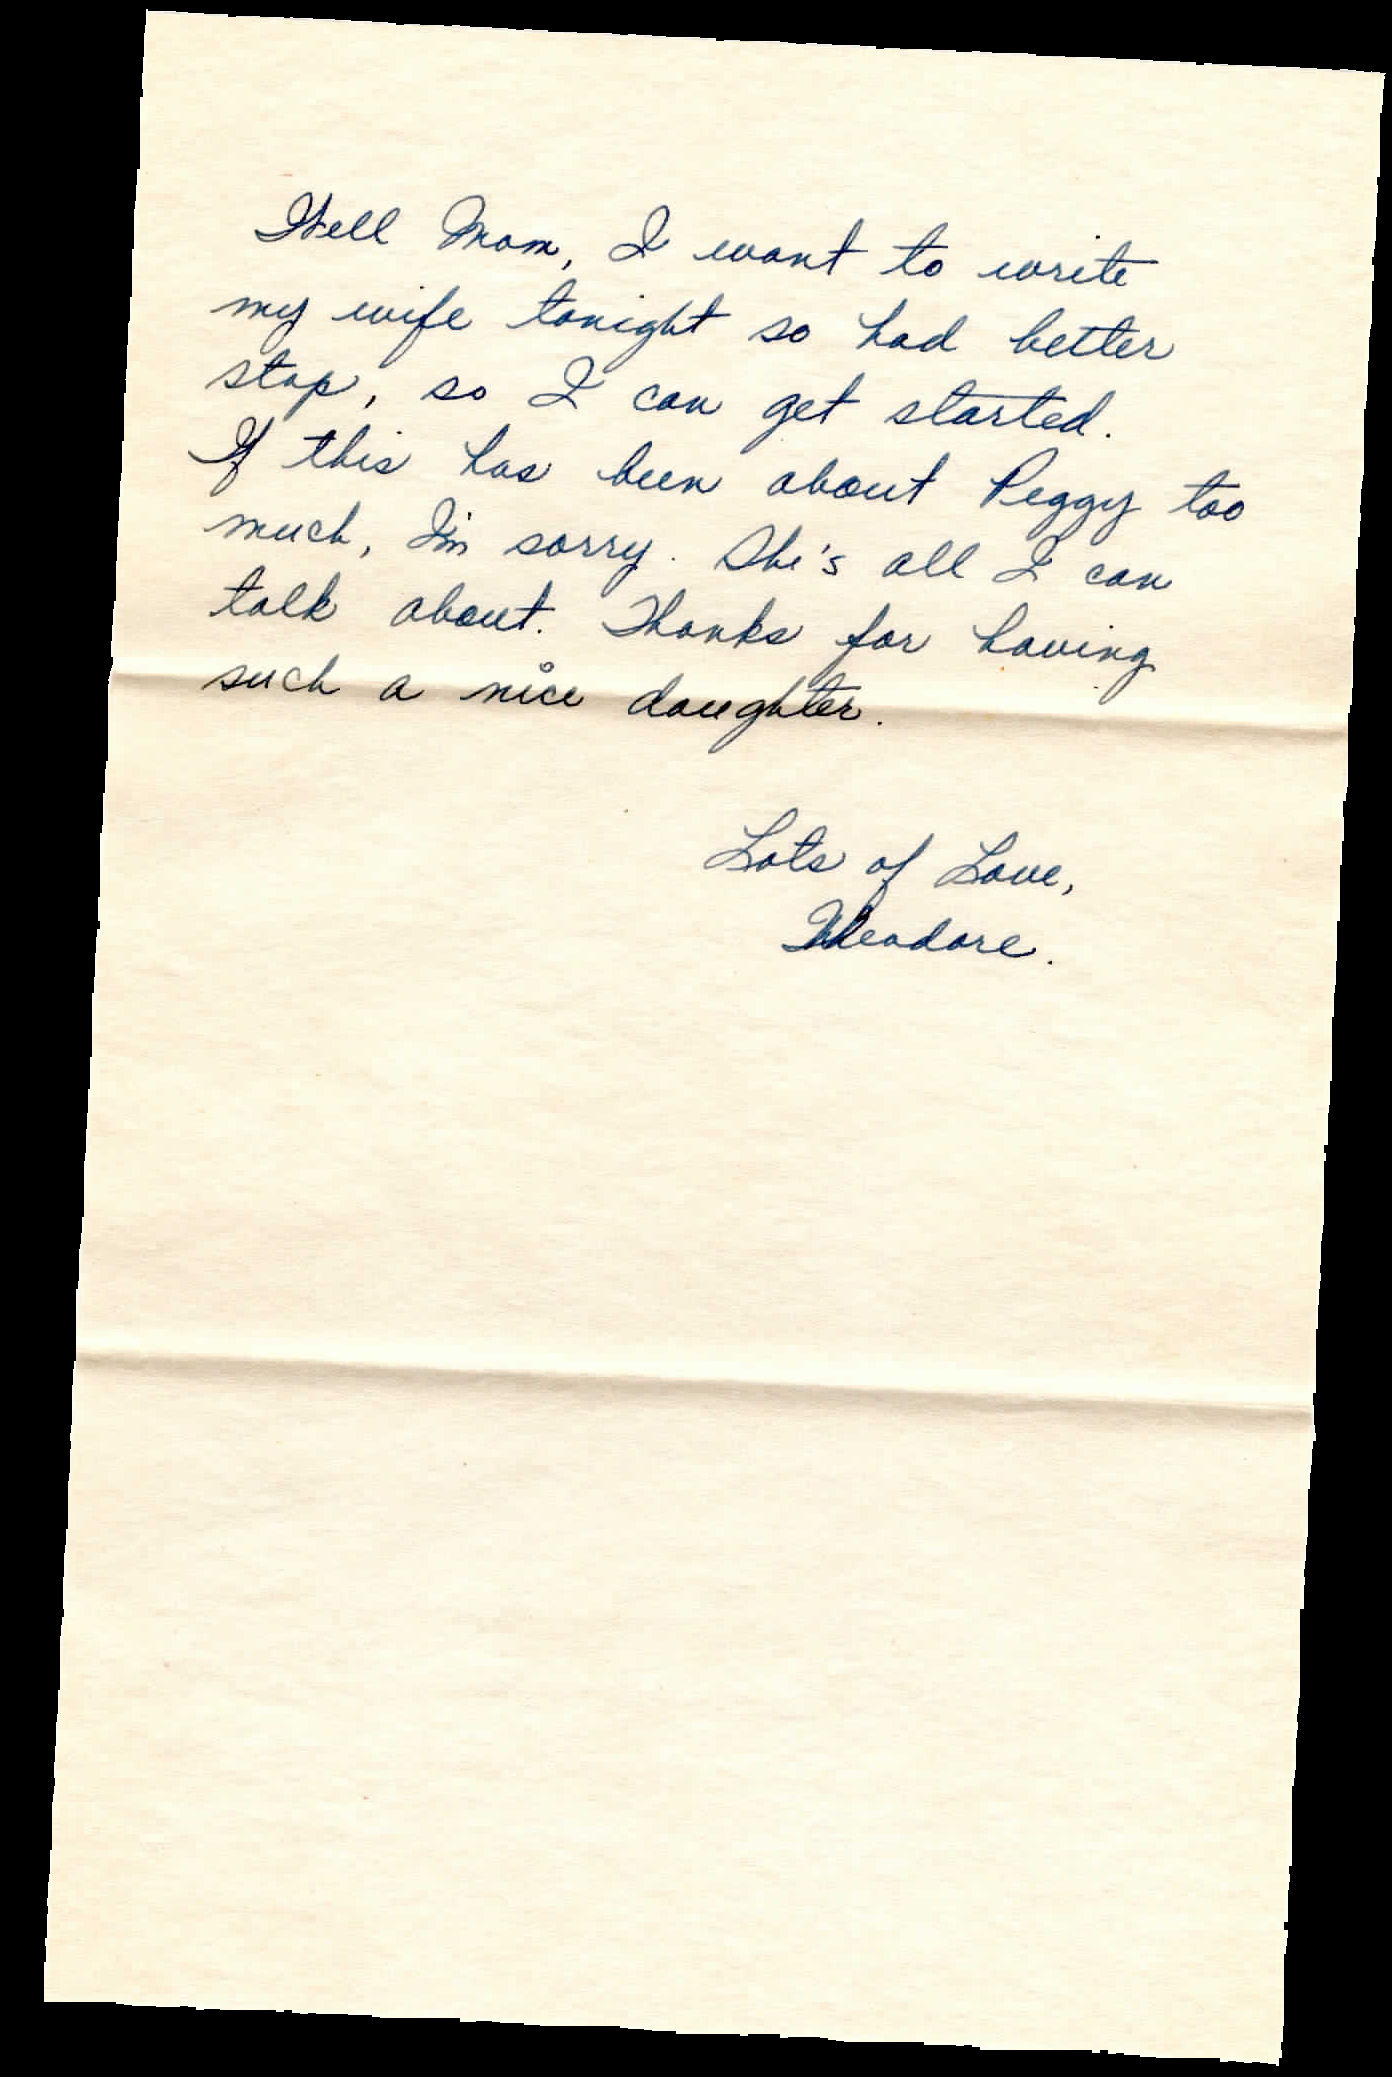 Well Mom, I want to write
my wife tonight so had better
stop, so I can get started.
If this has been about Peggy too
much, I'm sorry. She's all I can
talk about. Thanks for having
such a nice daughter.
Lots of Love,
Theodore.